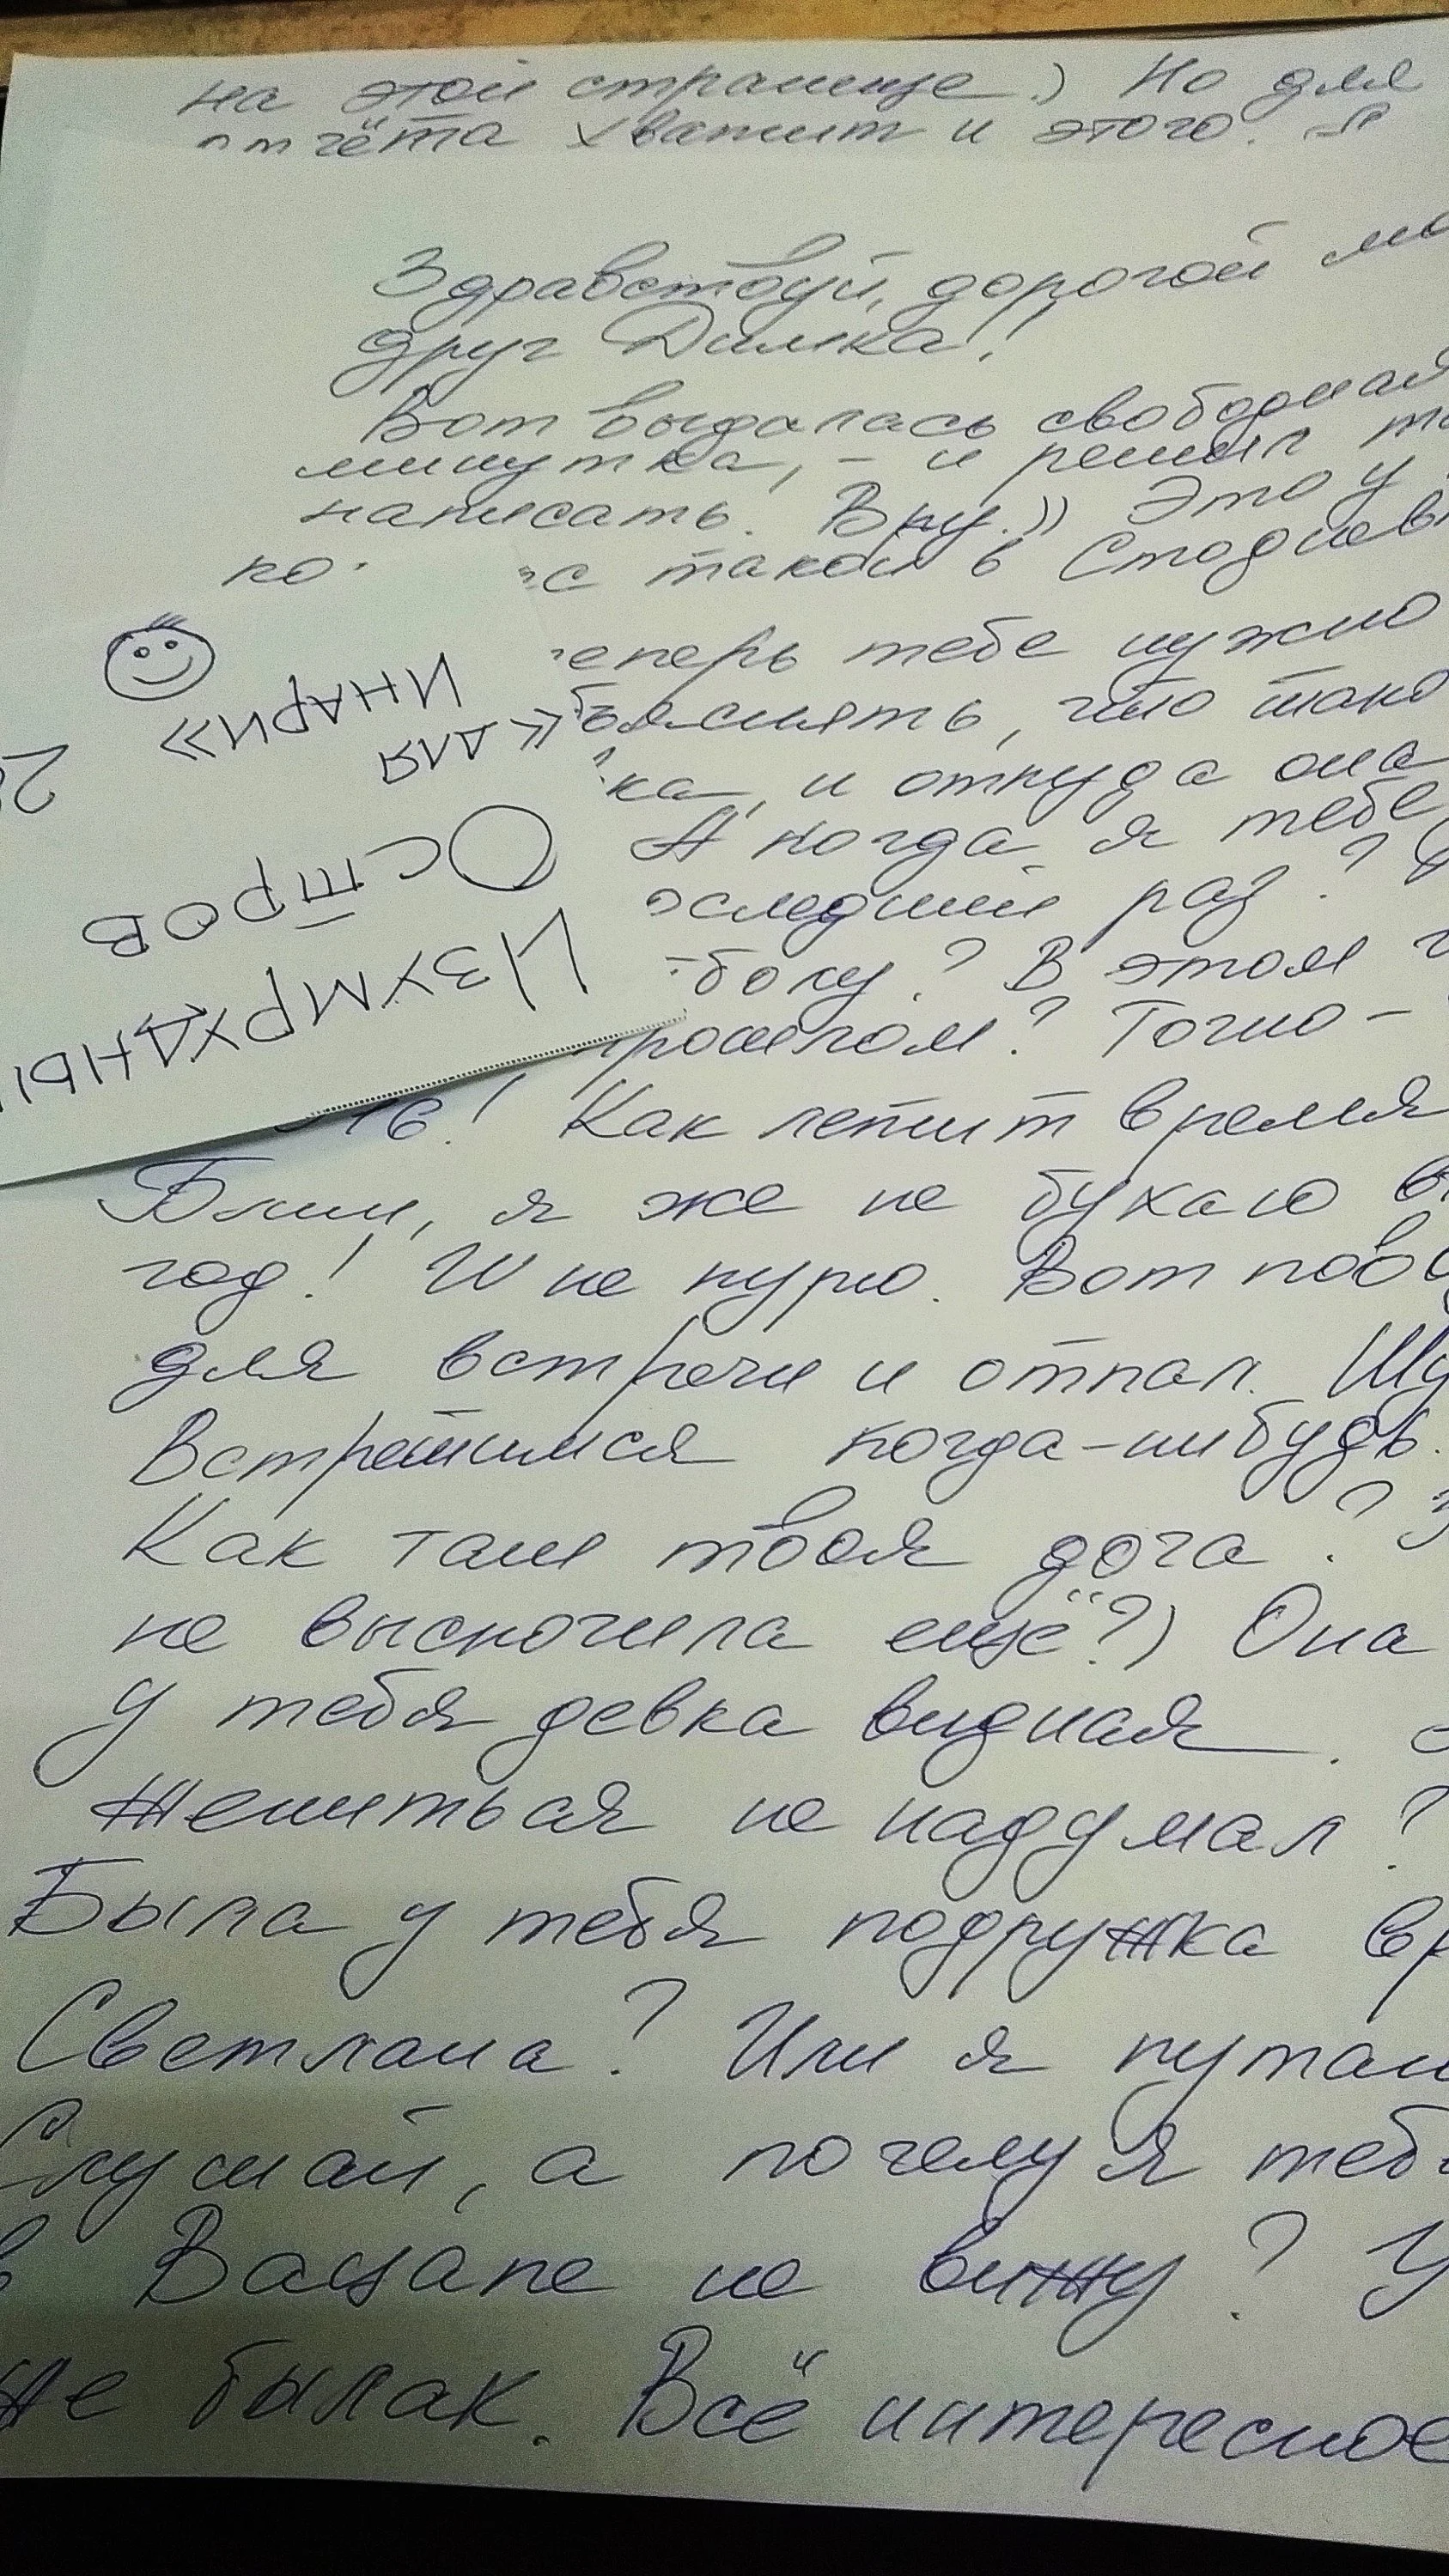 на этой странице.) Но для
отчёта хватит и этого.
Здравствуй, дорогой
друг Димка!
Вот выдалась свободная
минутка, - и решил
написать. Вру.)) Это у
такой в
теперь тебе нужно
объяснять, что
и откуда она
А когда я тебе
последний раз?
В этом
прошлом? Точно -
16! Как летит время
Блин, я же не бухаю
год! И не курю. Вот
для встречи и отпал.
Встретимся когда-нибудь.
Как там твоя доча?
не выскочила ещё?) Она
у тебя девка видная.
Жениться не надумал?
Была у тебя подружка
Светлана? Или я
Слушай, а почему я
в Вацапе не вижу?
не былак. Всё интересное
ИЗУМРУДНЫ
ОСТРОВ
«ДЛЯ
ИНАРИ»